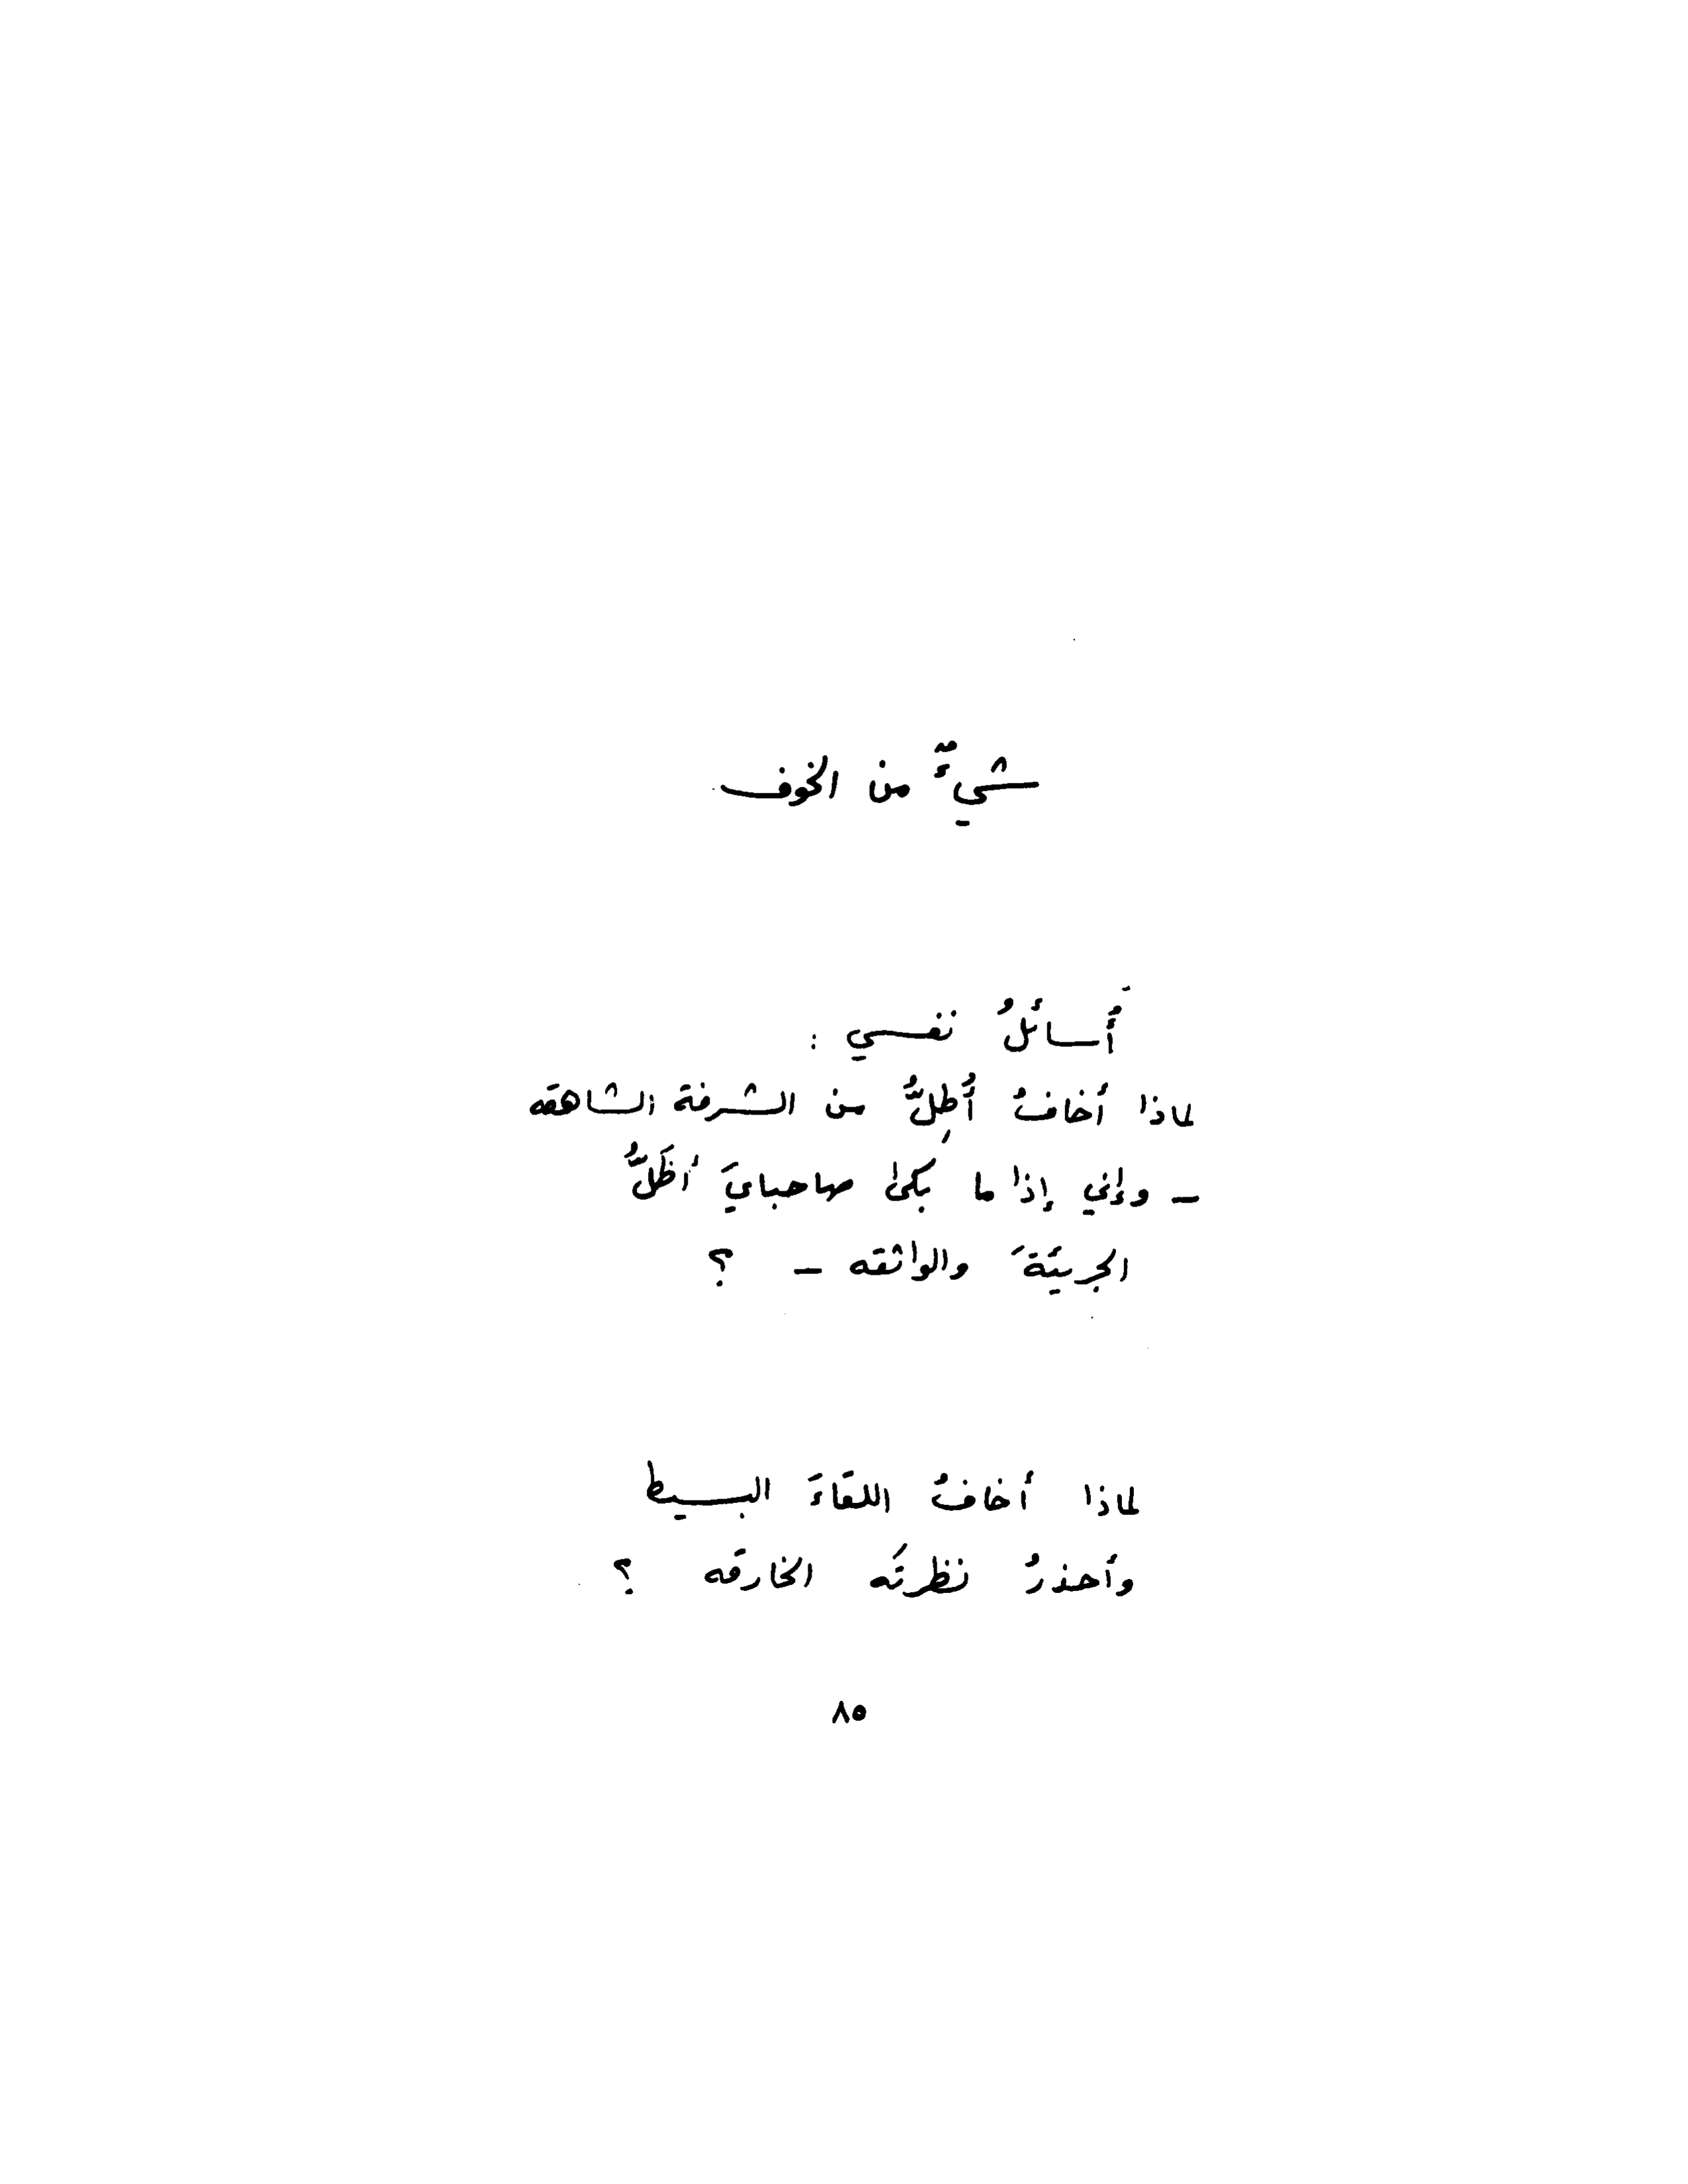 شيءٌ من الخوف
أُسائلُ نفسي :
لماذا أخافُ أُطِلُّ من الشرفة الشاهقه
– وإني إذا ما بكى صاحبايَ أظَلُّ
الجريئةَ والواثقه – ؟
لماذا أخافُ اللقاءَ البسيط
وأحذرُ نظرتَه الخارقه ؟
٨٥